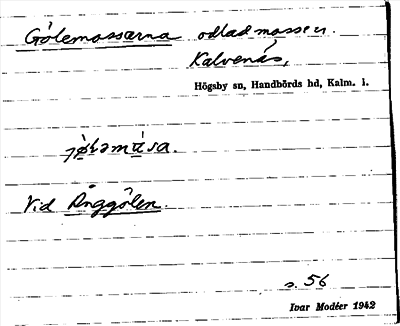 Gölemossarna odlad mosse u.
Kalvenäs,
Högsby sn, Handbörds hd, Kalm. l.
Vid Änggölen.
s. 56
Ivar Modéer 1942